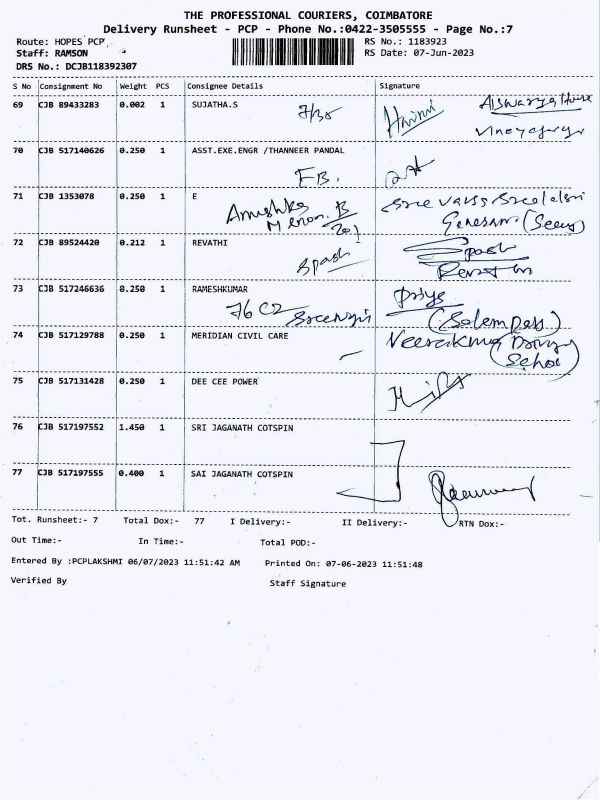 THE PROFESSIONAL COURIERS, COIMBATORE
Delivery Runsheet - PCP - Phone No.:0422-3505555 - Page No.:7
Route: HOPES PCP RS No.: 1183923
Staff: RAMSON RS Date: 07-Jun-2023
DRS No.: DCJB118392307
S No Consignment No Weight PCS Consignee Details Signature
69 CJB 89433283 0.002 1 SUJATHA.S
7/30 Harini Aiswarya House
Vinayagar
70 CJB 517140626 0.250 1 ASST.EXE.ENGR /THANNEER PANDAL
EB.
71 CJB 1353078 0.250 1 E
Anushka
Menon. B
201
72 CJB 89524420 0.212 1 REVATHI
Spash Spash
73 CJB 517246636 0.250 1 RAMESHKUMAR
76 C2 Priya
(Salem
74 CJB 517129788 0.250 1 MERIDIAN CIVIL CARE
75 CJB 517131428 0.250 1 DEE CEE POWER
76 CJB 517197552 1.450 1 SRI JAGANATH COTSPIN
77 CJB 517197555 0.400 1 SAI JAGANATH COTSPIN
Tot. Runsheet:- 7 Total Dox:- 77 I Delivery:- II Delivery:- RTN Dox:-
Out Time:- In Time:- Total POD:-
Entered By :PCPLAKSHMI 06/07/2023 11:51:42 AM Printed On: 07-06-2023 11:51:48
Verified By Staff Signature